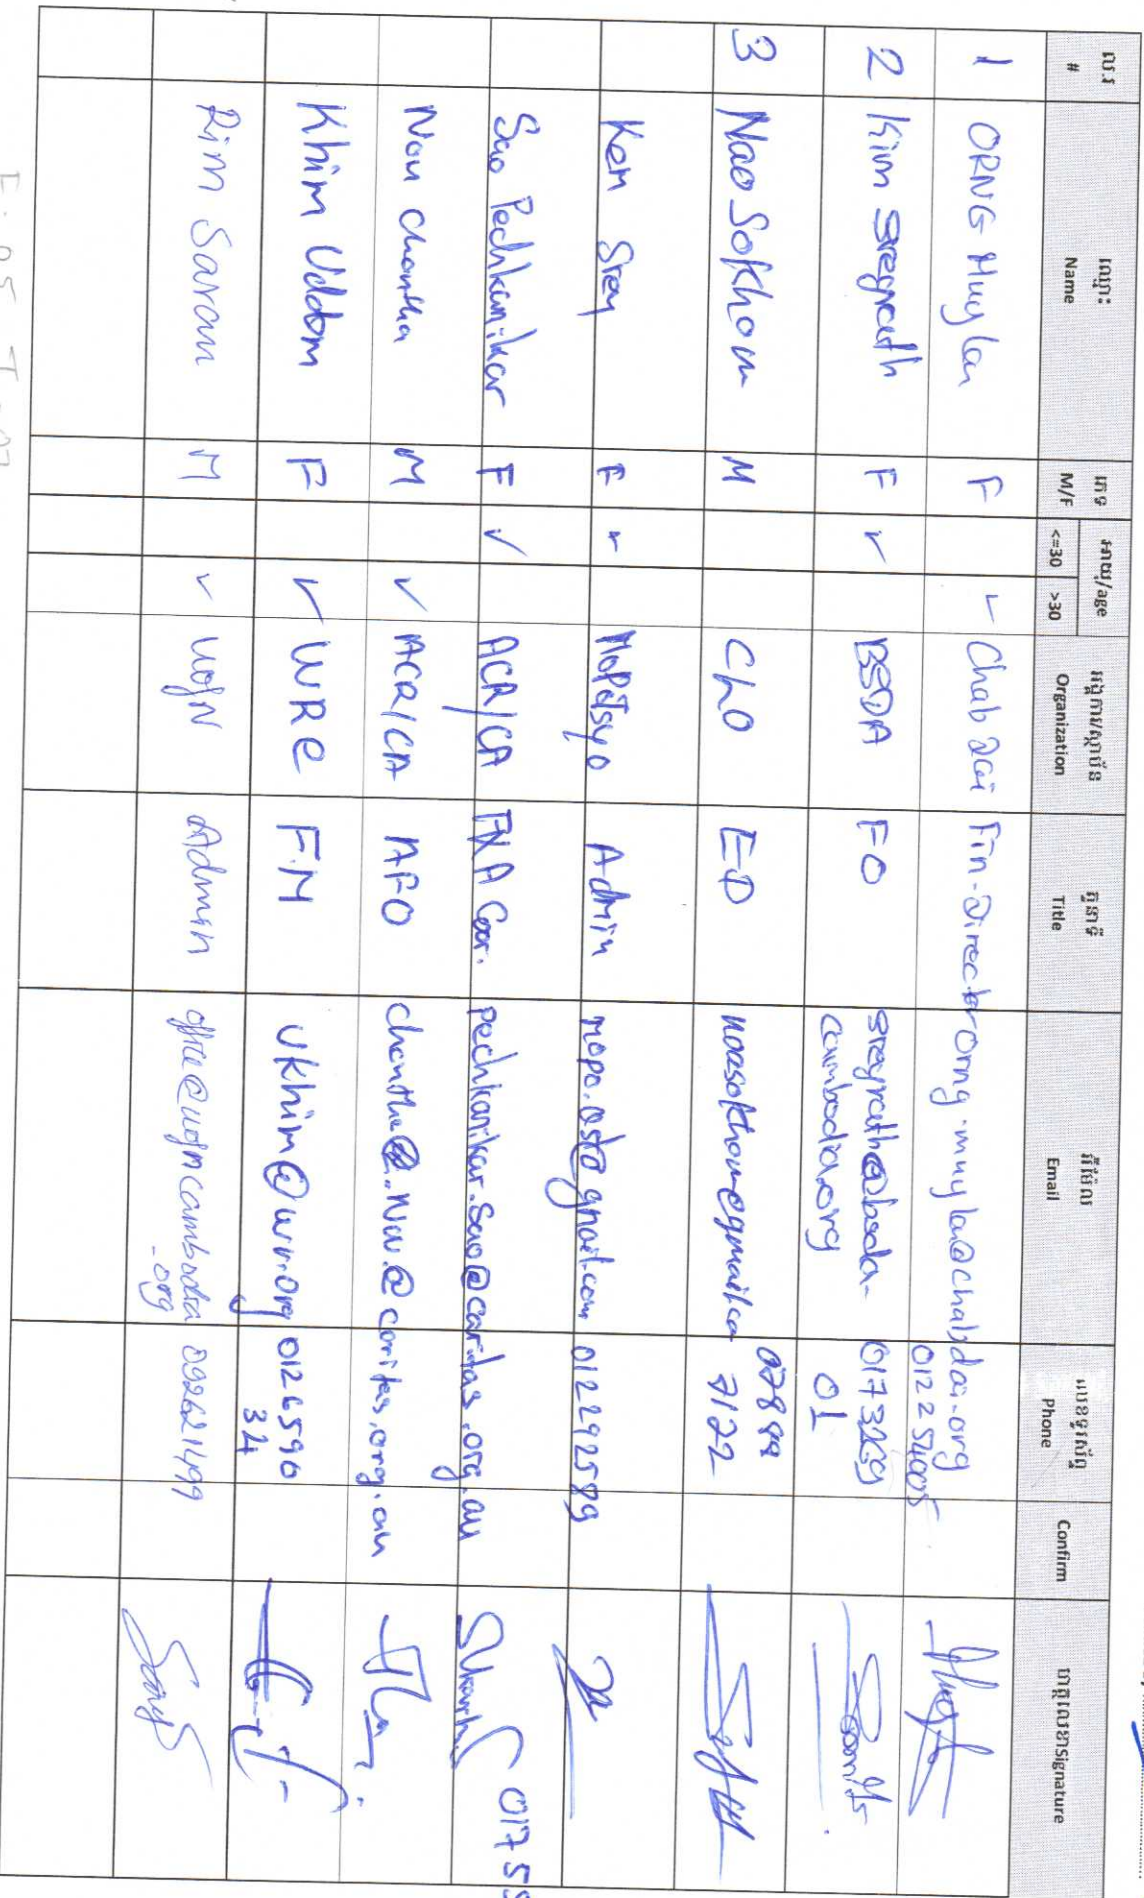 ល.រ # | ឈ្មោះ Name | ភេទ M/F | អាយុ/age <=30 >30 | អង្គការ/ស្ថាប័ន Organization | តួនាទី Title | អ៊ីម៉ែល Email | លេខទូរស័ព្ទ Phone | Confirm | ហត្ថលេខា Signature
1 ORNG Muy la F ✓ Chab Dai Fin-Director orng.muyla@chabdai.org 012254005
2 Kim Sreyrath F ✓ BSDA FO sreyrath@bsda-cambodia.org 017326901
3 Nao Sokhom M CLO ED 7122
Kem Srey F ✓ MoPoTsyo Admin 012292589
Sao Pechkanikar F ✓ ACR/CA Coor. pechkanikar.sao@caritas.org.au 0175
Nou Chantha M ✓ ACR/CA AFO @caritas.org.au
Khim Uddom F ✓ WRe F.M ukhim@wr.org 012659034
Rim Saran M ✓ UofN Admin office@uofncambodia.org